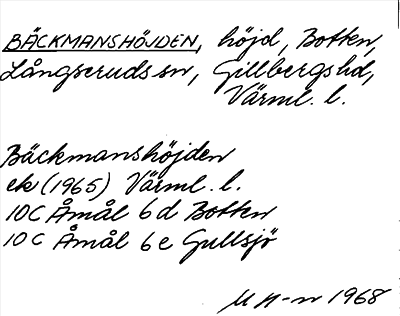 BÄCKMANSHÖJDEN, höjd, Botten,
Långseruds sn, Gillbergs hd,
Värml. l.
Bäckmanshöjden
ek (1965) Värml. l.
10C Åmål 6d Botten
10C Åmål 6e Gullsjö
M H-n 1968